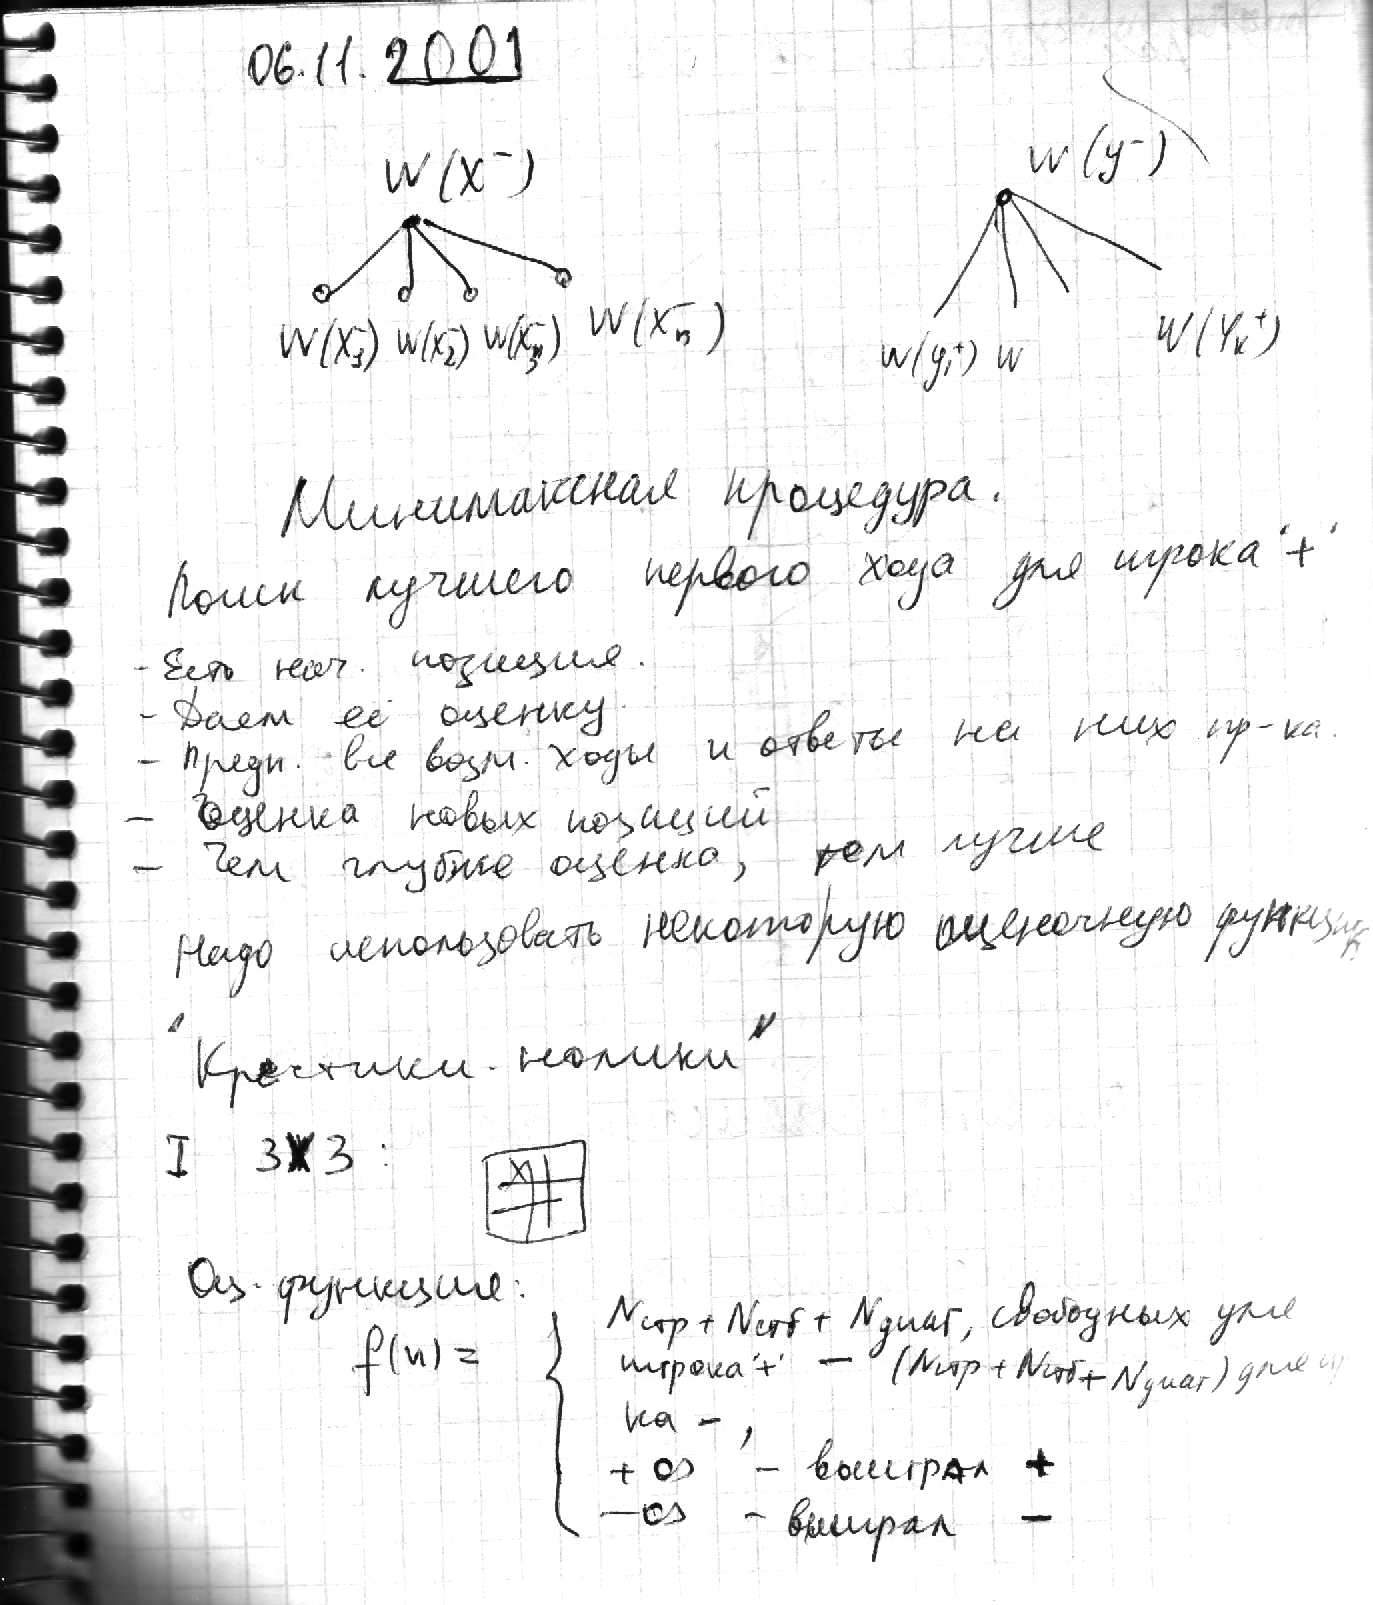 06.11.2001
W(X⁻) W(y⁻)
W(X₃⁻) W(X₂⁻) W(X₃⁻) W(Xₙ⁻) W(y₁⁺) W W(Yₖ⁺)
Минимаксная процедура.
Поиск лучшего первого хода для игрока '+'
- Есть нач. позиция.
- Даем её оценку.
- Предп. все возм. ходы и ответы на них пр-ка.
- Оценка новых позиций
- Чем глубже оценка, тем лучше
Надо использовать некоторую оценочную функцию
"Крестики-нолики"
I 3X3:
X
Оц. функция:
Nстр + Nстб + Nдиаг, свободных для
f(n) = игрока '+' - (Nстр + Nстб + Nдиаг) для иг
ка -,
+∞ - выиграл +
-∞ - выиграл -